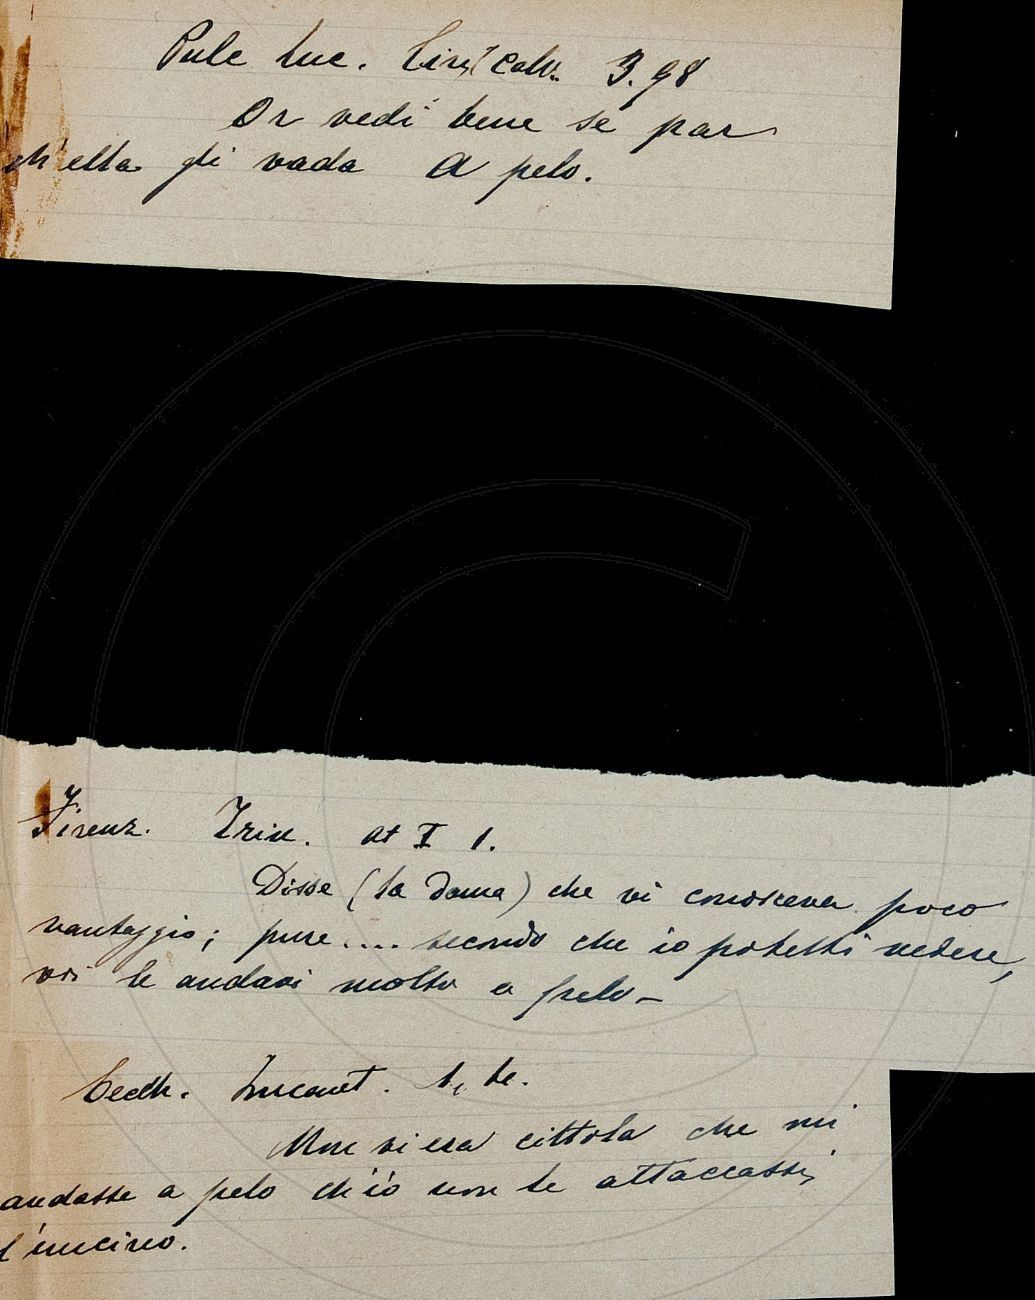 Pulc Luc. Cirif Calv. 3.98
Or vedi bene se par
ch'ella gli vada a pelo.
Firenz. Trin. at I 1.
Disse (la dama) che vi conosceva poco
vantaggio; pure.... secondo che io potetti vedere,
voi le andavi molto a pelo –
Cecch. Incant.
Non vi era cittola che mi
andasse a pelo ch'io non le attaccassi
l'uncino.